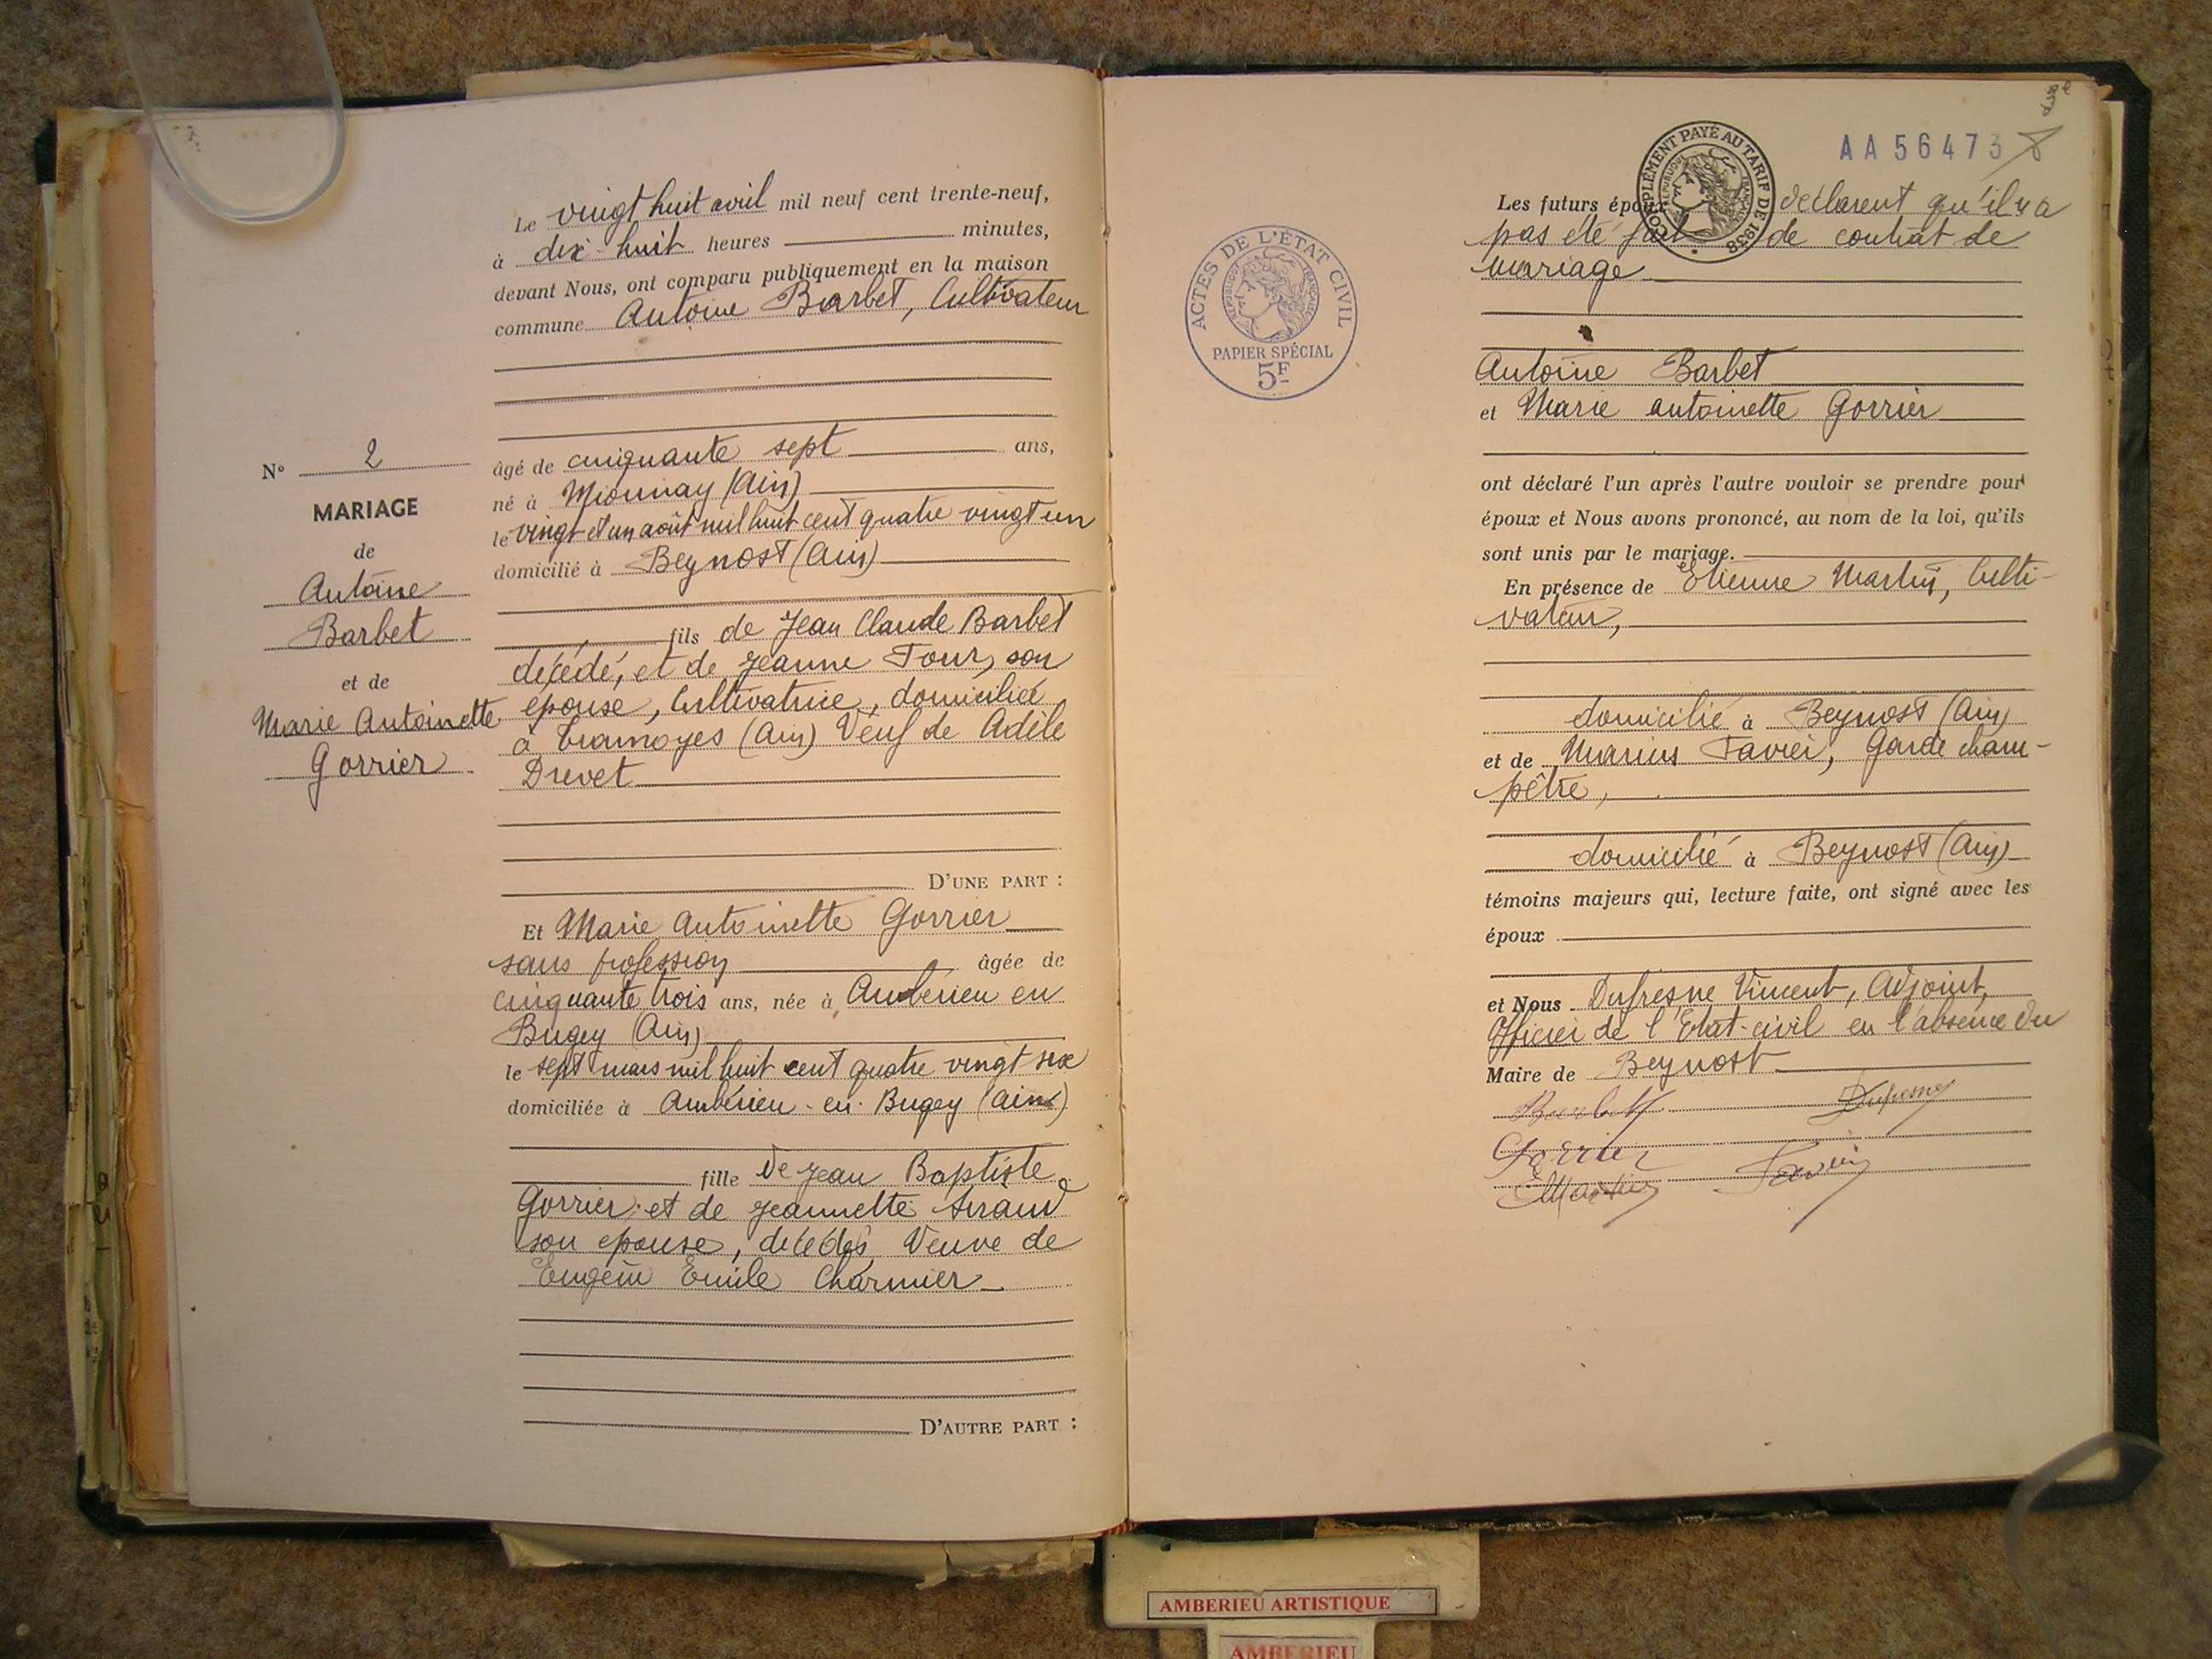 Le vingt huit avril mil neuf cent trente-neuf,
à dix-huit heures minutes,
devant Nous, ont comparu publiquement en la maison
commune Antoine Barbet, Cultivateur
âgé de cinquante sept ans,
né à Mionnay (Ain)
le vingt et un août mil huit cent quatre vingt un
domicilié à Beynost (Ain)
fils de Jean Claude Barbet
décédé, et de Jeanne Tour, son
épouse, Cultivatrice, domiciliée
à Tramoyes (Ain) Veuf de Adèle
Drevet
D'UNE PART :
N° 2
MARIAGE
de
Antoine
Barbet
et de
Marie Antoinette
Gorrier
Et Marie Antoinette Gorrier
sans profession âgée de
cinquante trois ans, née à Ambérieu en
Bugey (Ain)
le sept mars mil huit cent quatre vingt six
domiciliée à Ambérieu-en-Bugey (Ain)
fille de Jean Baptiste
Gorrier et de Jeannette Siraud
son épouse, décédés Veuve de
Eugène Emile Charmier
D'AUTRE PART :
ACTES DE L'ÉTAT CIVIL
RÉPUBLIQUE FRANÇAISE
PAPIER SPÉCIAL
5F
COMPLÉMENT PAYÉ AU TARIF DE 1938
AA56473
Les futurs époux déclarent qu'il n'a
pas été fait de contrat de
mariage
Antoine Barbet
et Marie antoinette Gorrier
ont déclaré l'un après l'autre vouloir se prendre pour
époux et Nous avons prononcé, au nom de la loi, qu'ils
sont unis par le mariage.
En présence de Etienne Martin, Culti-
vateur,
domicilié à Beynost (Ain)
et de Marius Favier, Garde cham-
pêtre,
domicilié à Beynost (Ain)
témoins majeurs qui, lecture faite, ont signé avec les
époux
et Nous Dufresne Vincent, Adjoint,
Officier de l'Etat-civil en l'absence du
Maire de Beynost
Barbet Dufresne
Gorrier
EMartin Favier
AMBERIEU ARTISTIQUE
AMBERIEU